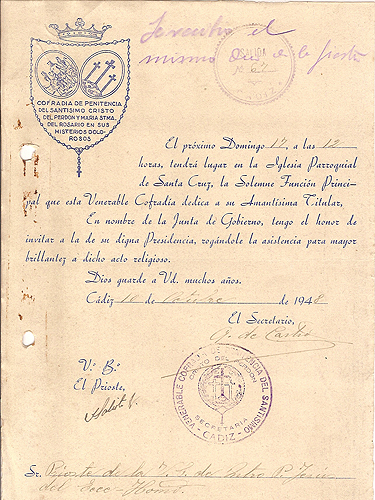 Se recibió el
mismo día de la fiesta
SALIDA
COFRADIA DE PENITENCIA
DEL SANTISIMO CRISTO
DEL PERDON Y MARIA STMA.
DEL ROSARIO EN SUS
MISTERIOS DOLO-
ROSOS
El próximo Domingo 17, a las 12
horas, tendrá lugar en la Iglesia Parroquial
de Santa Cruz, la Solemne Función Princi-
pal que esta Venerable Cofradía dedica a su Amantísima Titular,
En nombre de la Junta de Gobierno, tengo el honor de
invitar a la de su digna Presidencia, rogándole la asistencia para mayor
brillantez a dicho acto religioso.
Dios guarde a Vd. muchos años.
Cádiz 10 de Octubre de 1948
El Secretario,
G. de Castro
V.º B.º
El Prioste,
VENERABLE COFRADIA DE PENITENCIA DEL SANTISIMO
CRISTO DEL PERDON
SECRETARIA
- CADIZ -
Sr. Prioste de la de Ntro. P. Jesús
del Ecce-Homo.